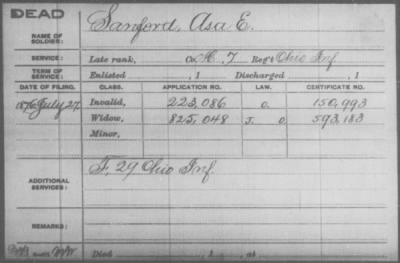 DEAD
NAME OF SOLDIER: Sanford, Asa E.
SERVICE: Late rank, Co. H. 7 Reg't Ohio Inf
TERM OF SERVICE: Enlisted , 1 Discharged , 1
DATE OF FILING. CLASS. APPLICATION NO. LAW. CERTIFICATE NO.
1876 July 27. Invalid, 223,086 O. 150,993
Widow, 825,048 J. O. 593,183
Minor,
ADDITIONAL SERVICES: F, 29 Ohio Inf.
REMARKS:
Died , 1 , at